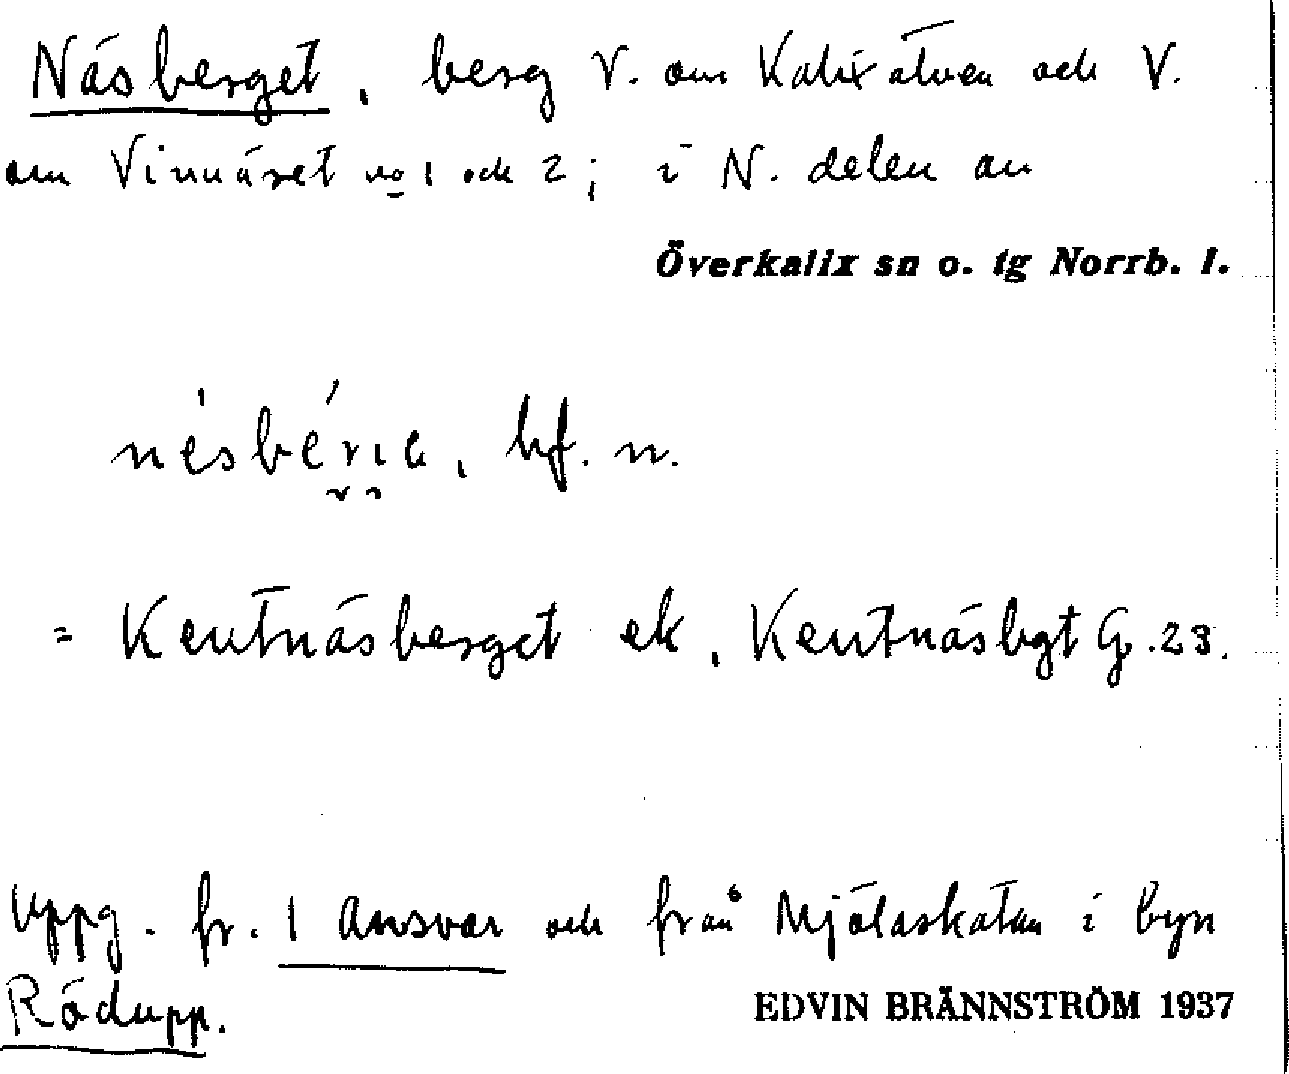 Näsberget, berg V. om Kalixälven och V.
om Vinnäset no 1 och 2; i N. delen av
Överkalix sn o. tg Norrb. l.
bf. n.
= Kentnäsberget ek, Kentnäsbgt G. 23.
Uppg. fr. 1 Ansvar och från Mjölaskatan i byn
Rödupp.
EDVIN BRÄNNSTRÖM 1937